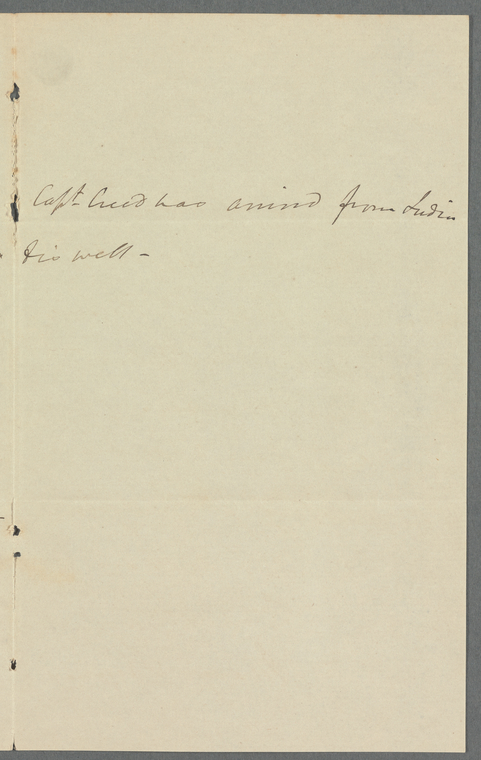 Capt. Creed has arrived from India
& is well -